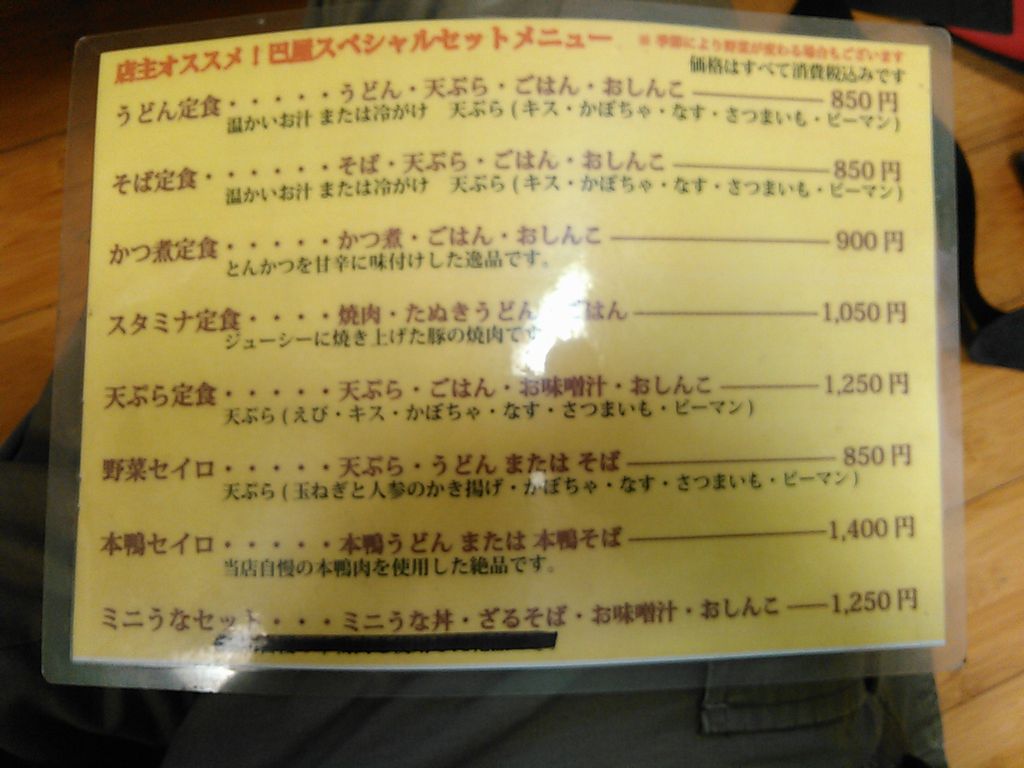 店主オススメ！巴屋スペシャルセットメニュー
※ 季節により野菜が変わる場合もございます
価格はすべて消費税込みです
うどん定食・・・・・うどん・天ぷら・ごはん・おしんこ 850円
温かいお汁 または冷がけ 天ぷら ( キス・かぼちゃ・なす・さつまいも・ピーマン )
そば定食・・・・・・そば・天ぷら・ごはん・おしんこ 850円
温かいお汁 または冷がけ 天ぷら ( キス・かぼちゃ・なす・さつまいも・ピーマン )
かつ煮定食・・・・・かつ煮・ごはん・おしんこ 900円
とんかつを甘辛に味付けした逸品です。
スタミナ定食・・・・焼肉・たぬきうどん ごはん 1,050円
ジューシーに焼き上げた豚の焼肉です
天ぷら定食・・・・・天ぷら・ごはん・お味噌汁・おしんこ 1,250円
天ぷら ( えび・キス・かぼちゃ・なす・さつまいも・ピーマン )
野菜セイロ・・・・・天ぷら・うどん または そば 850円
天ぷら ( 玉ねぎと人参のかき揚げ・かぼちゃ・なす・さつまいも・ピーマン )
本鴨セイロ・・・・・本鴨うどん または 本鴨そば 1,400円
当店自慢の本鴨肉を使用した絶品です。
ミニうなセット・・・ミニうな丼・ざるそば・お味噌汁・おしんこ 1,250円